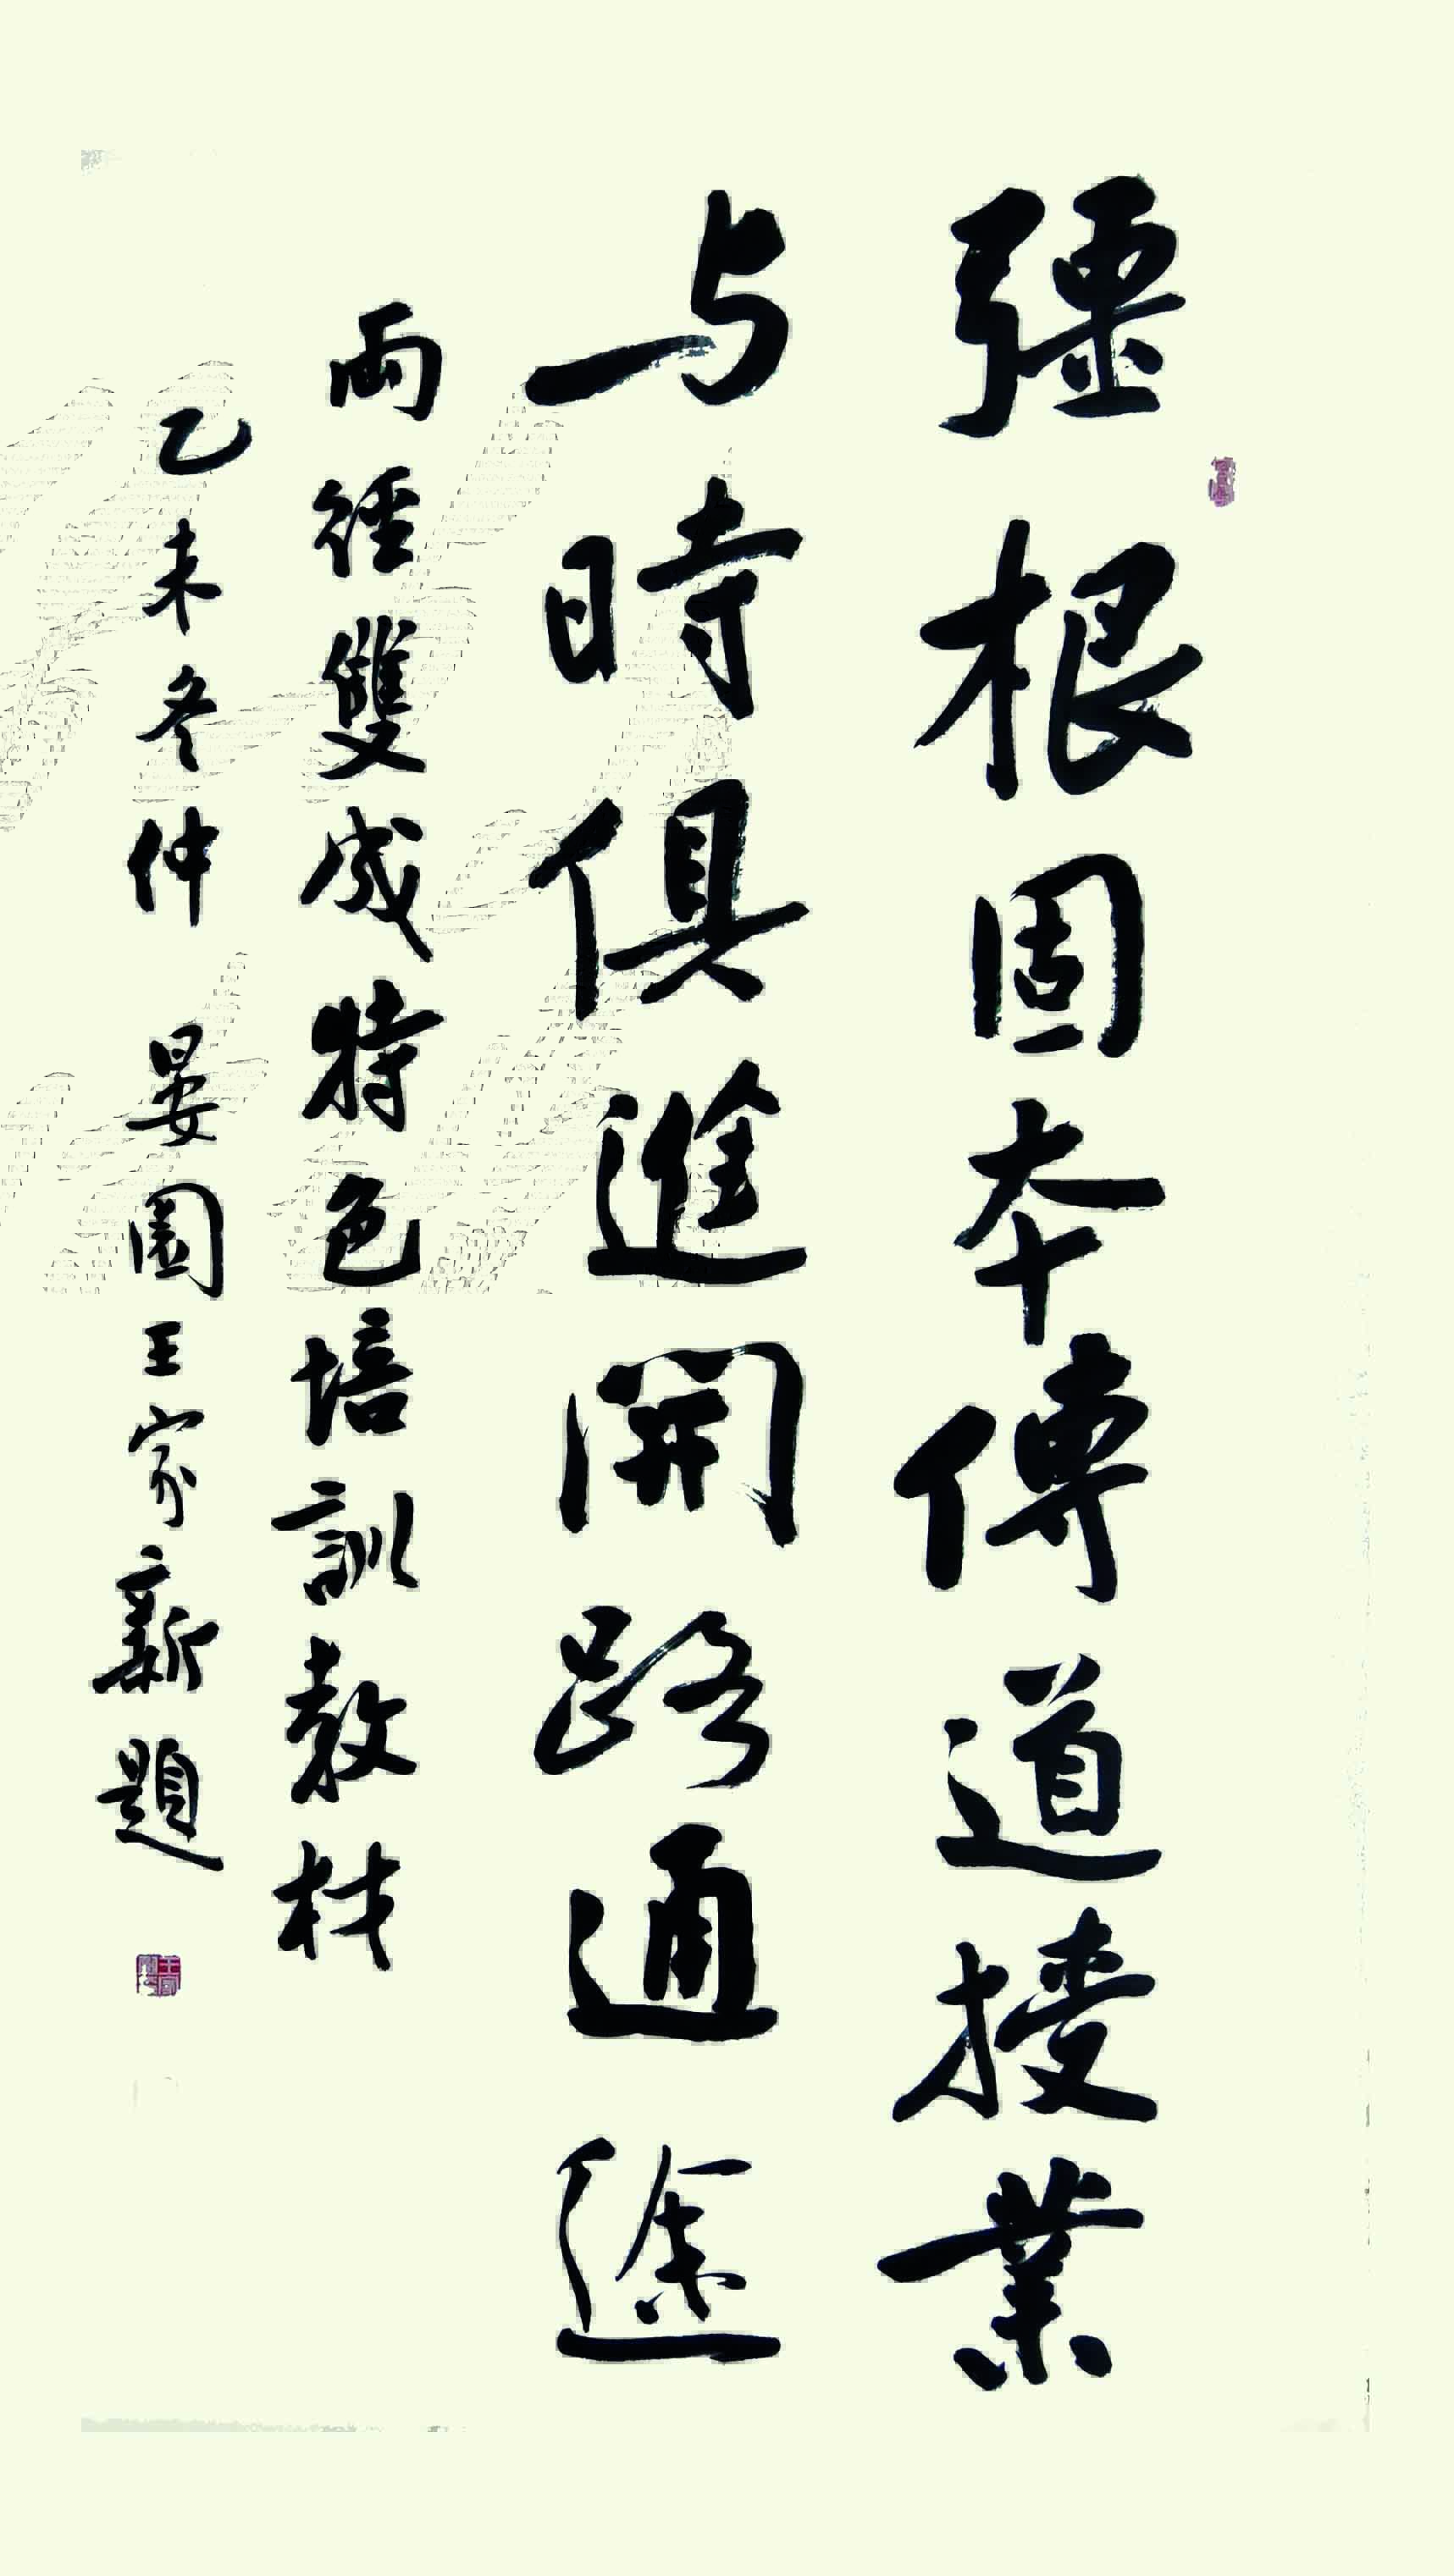 彊根固本傳道授業
与時俱進開路通途
兩徑雙成特色培訓教材
乙未冬仲 晏園王家新題